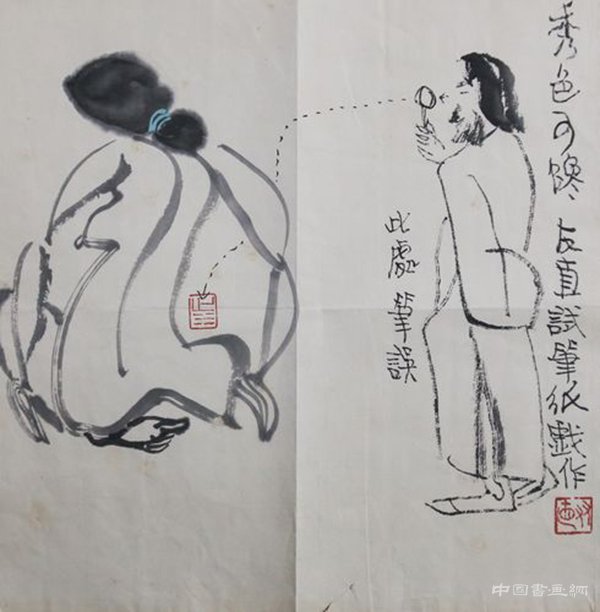 秀色可 友直試筆紙戲作
此處筆誤
中国書画網